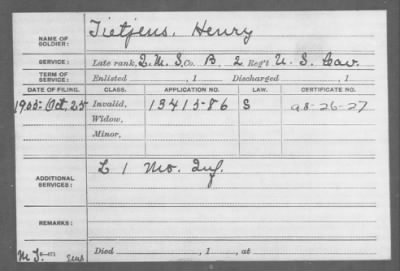 NAME OF SOLDIER: Tietjens, Henry
SERVICE: Late rank, Q. M. S, Co. B, 2 Reg't U. S. Cav.
TERM OF SERVICE: Enlisted , 1 Discharged , 1
DATE OF FILING. CLASS. APPLICATION NO. LAW. CERTIFICATE NO.
1905-Oct. 25 Invalid, 1341586 S
Widow,
Minor,
ADDITIONAL SERVICES: L 1 Mo. Inf.
REMARKS:
Died , 1 , at